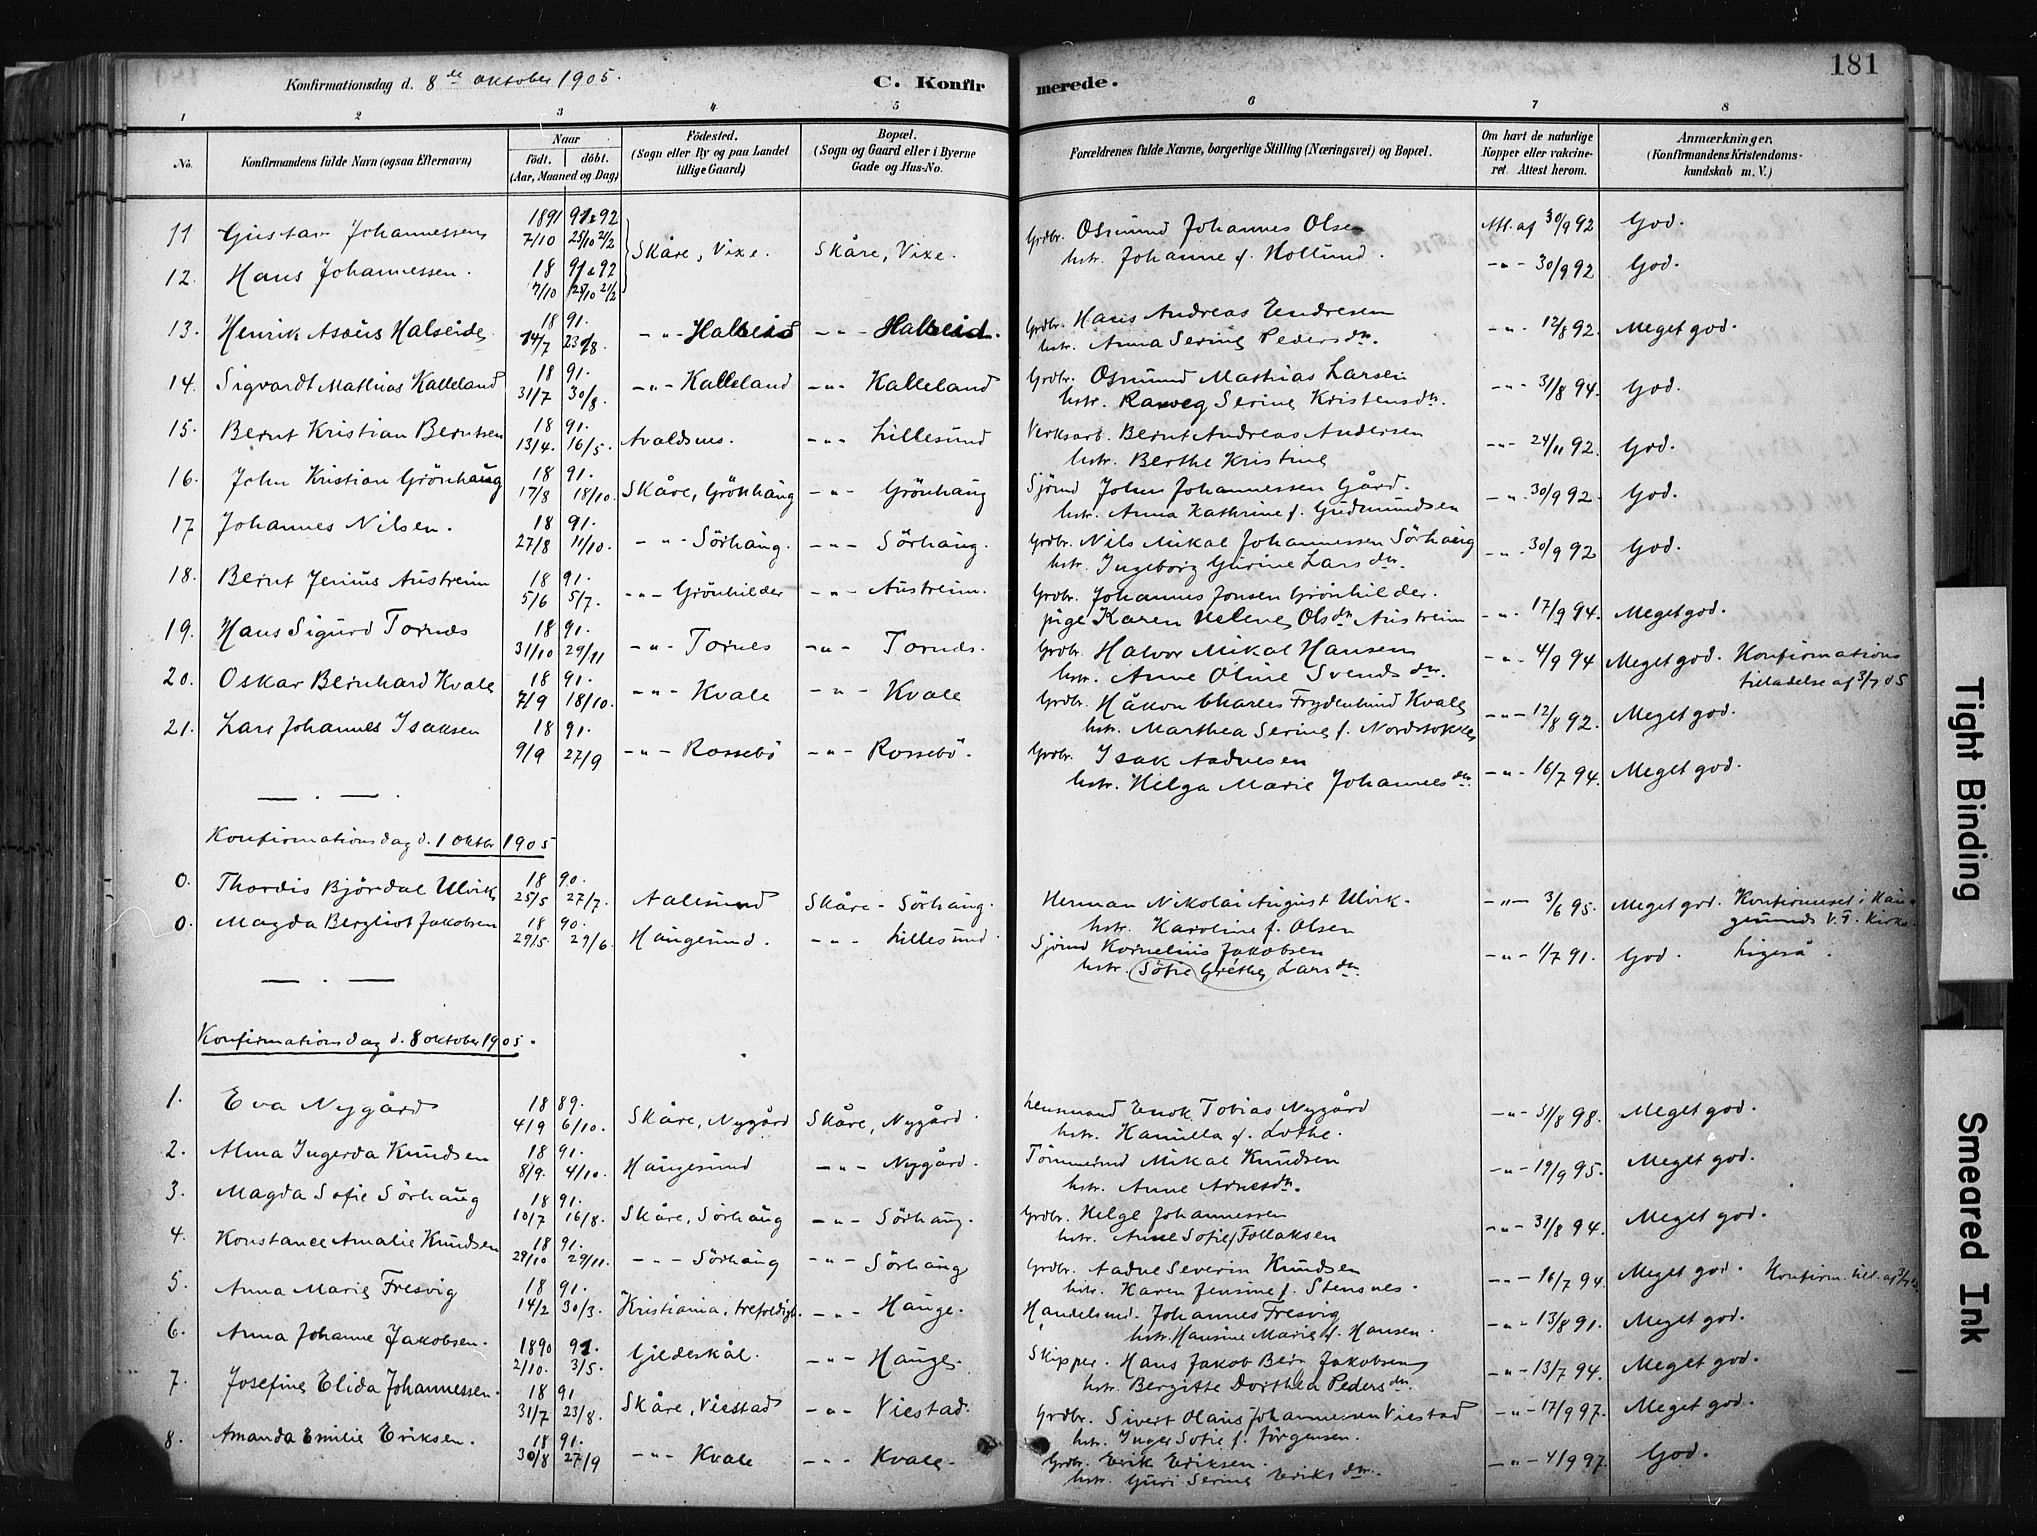 181
Konfirmationsdag d. 8de oktober 1905.
C. Konfirmerede.
1 2 3 4 5 6 7 8
No. Konfirmandens fulde Navn (ogsaa Efternavn) Naar födt. döbt. (Aar, Maaned og Dag) Födested. (Sogn eller By og paa Landet tillige Gaard) Bopæl. (Sogn og Gaard eller i Byerne Gade og Hus-No. Forældrenes fulde Navne, borgerlige Stilling (Næringsvei) og Bopæl. Om havt de naturlige Kopper eller vakcineret. Attest herom. Anmærkninger. (Konfirmandens Kristendomskundskab m. V.)
11 Gustav Johannessen 1891 7/10 91 & 92 25/10 2/2 Skåre, Vixe. Skåre, Vixe. Grdbr. Osmund Johannes Olsen Att. af 30/9 92 God.
hstr. Johanne f. Hollund.
12. Hans Johannessen. 18 7/10 91 & 92 25/10 21/2 -"- 30/9 92 God.
13. Henrik Asseus Halseide 18 91. 14/7 23/8. -"- Halseid -"- Halseid. Grdbr. Hans Andreas Endresen -"- 12/8 92. Meget god.
hstr. Anna Serine Pedersdtr.
14. Sigvardt Mathias Kalleland 18 91. 31/7 30/8. -"- Kalleland -"- Kalleland Grdbr. Osmund Mathias Larsen -"- 31/8 94. God.
hstr. Ranveg Serine Kristensdtr.
15. Bernt Kristian Berntsen 18 91. 13/4. 16/5. Avaldsnes. -"- Lillesund Verksarb. Bernt Andreas Andersen -"- 24/11 92. God.
hstr. Berthe Kristine
16. John Kristian Grönhaug 18 91. 17/8 18/10. Skåre, Grönhaug -"- Grönhaug Sjömd Johns Johannessen Gård. -"- 30/9 92. God.
hstr. Anna Kathrine f. Gudmundsen
17 Johannes Nilsen. 18 91. 27/8 11/10. -"- Sörhaug. -"- Sörhaug. Grdbr. Nils Mikal Johannessen Sörhaug -"- 30/9 92 God.
hstr. Ingeborg Gurine Larsdtr.
18. Bernt Jenius Austreim 18 91. 5/6 5/7. -"- Grönhilder -"- Austreim. Grdbr. Johannes Jonsen Grönhilder. -"- 17/9 94. Meget god.
pige Karen Helene Olsdtr Austreim
19. Hans Sigurd Tornes 18 91. 31/10 29/11 -"- Tornes -"- Tornes. Grdbr. Halvor Mikal Hansen -"- 4/9 94 Meget god. Konfirmations tilladelse af 3/7 05
hstr. Anne Oline Svendsdtr.
20. Oskar Bernhard Kvale 18 91. 7/9 18/10. -"- Kvale -"- Kvale Grdbr. Håkon Charles Frydenlund Kvale -"- 12/8 92. Meget god.
hstr. Marthea Serine f. Nordstokke
21. Lars Johannes Isaksen 18 91. 9/9 27/9 -"- Rossebö -"- Rossebö. Grdbr. Isak Aadnesen -"- 16/7 94. Meget god.
hstr. Helga Marie Johannesdtr.
Konfirmationsdag d. 1 Oktbr 1905
0. Thordis Björdal Ulvik 18 90. 25/5 27/7. Aalesund Skåre - Sörhaug. Herman Nikolai August Ulvik. -"- 3/6 95. Meget god. Konfirmeret i Haugesunds V. F. Kirke.
hstr. Karoline f. Olsen
0. Magda Bergliot Jakobsen 18 90. 29/5. 29/6. Haugesund. -"- Lillesund. Sjömd Kornelius Jakobsen -"- 1/7 91. God. Ligeså.
hstr. Sofie Grethe Larsdtr.
Konfirmationsdag d. 8 oktober 1905.
1. Eva Nygård 18 89. 4/9 6/10. Skåre, Nygård Skåre, Nygård Lensmand Enok Tobias Nygård -"- 31/8 98. Meget god.
hstr. Kamilla f. Lothe.
2. Alma Ingerda Knudsen 18 91. 8/9. 4/10. Haugesund -"- Nygård. Tömmermd Mikal Knudsen -"- 19/9 95. Meget god.
hstr. Anne Arnesdtr.
3. Magda Sofie Sörhaug 18 91. 10/7 16/8. Skåre, Sörhaug -"- Sörhaug. Grdbr. Helge Johannessen -"- 31/8 94. Meget god.
hstr. Anne Sofie Follaksen
4. Konstance Amalie Knudsen 18 91. 29/10 29/11. -"- Sörhaug -"- Sörhaug Grdbr. Aadne Severin Knudsen -"- 16/7 94. Meget god. Konfirm. till. af
hstr. Karen Jensine f. Stensnes.
5. Anna Marie Fresvig 18 91. 14/2 30/3. Kristiania, trefoldigh. -"- Hauge. Handelsmd. Johannes Fresvig -"- 13/8 91. Meget god.
hstr. Hansine Marie f. Hansen.
6. Anna Johanne Jakobsen. 1890 91. 2/10. 3/5. Gildeskål. -"- Hauge. Skipper. Hans Jakob Berg Jakobsen -"- 13/7 94. Meget god.
hstr. Bergitte Dorthea Pedersdtr.
7. Josefine Elida Johannessen. 18 91 31/7 23/8. Skåre, Viestad -"- Viestad. Grdbr. Sivert Olaus Johannessen Viestad -"- 17/9 97. Meget god.
hstr. Inger Sofie f. Jörgensen.
8. Amanda Emilie Eriksen. 18 91. 30/8 27/9 -"- Kvale -"- Kvale. Grdbr. Erik Eriksen. -"- 4/9 97. God.
hstr. Guri Serine Eriksdtr.
Tight Binding
Smeared Ink